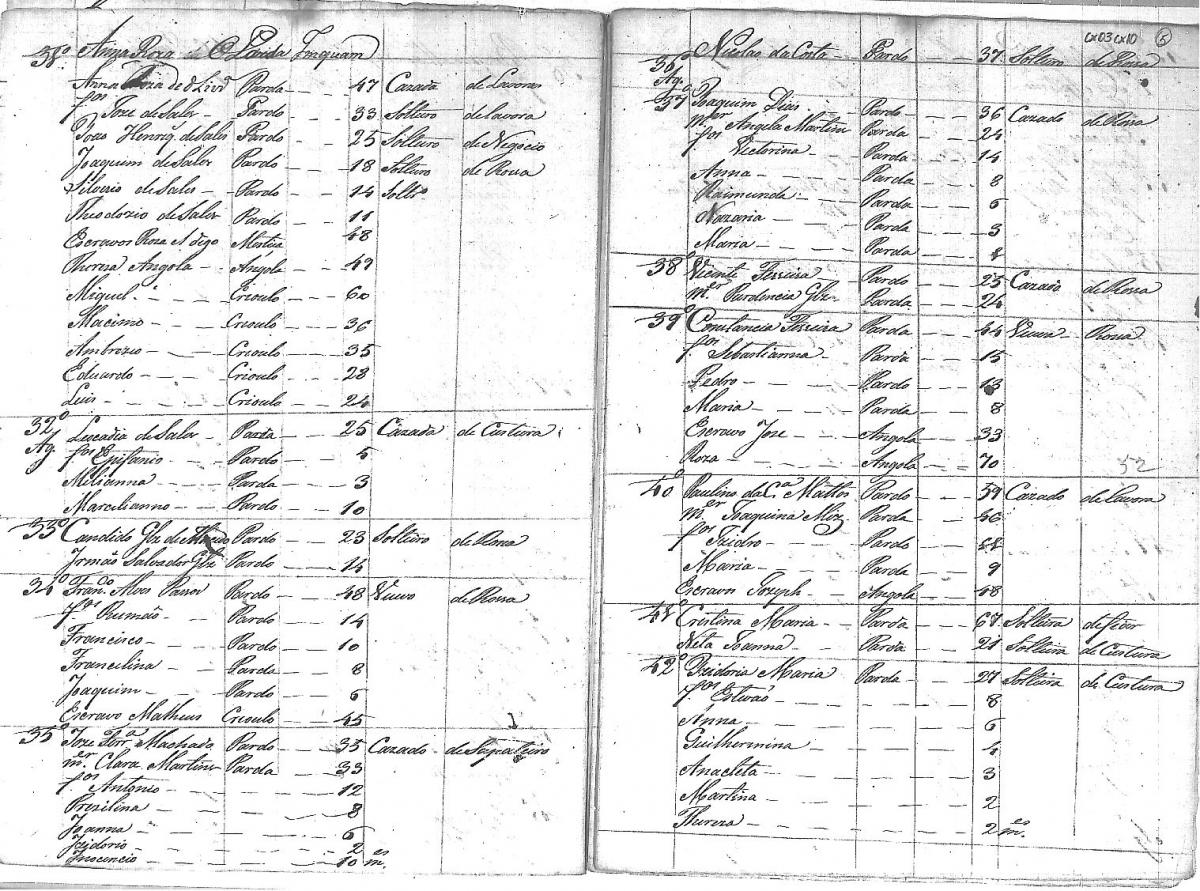 38º Anna Roza de O Parda Inquam
Anna Roza de Olivr.ª Parda 47 Cazada de Lavoura
f.os Joze de Sales Pardo 33 Solteiro de Lavora
Joao Henrq de Sales Pardo 25 Solteiro de Negocio
Joaquim de Sales Pardo 18 Solteiro de Rossa
Silverio de Sales Pardo 14 Soltº
Theodozio de Sales Pardo 11
Escravos Roza 48
Thereza Angola Angola 49
Miguel Crioulo 60
Macimo Crioulo 36
Ambrozio Crioulo 35
Eduardo Crioulo 28
Luis Crioulo 24
32º Leocadia de Sales Parda 25 Cazada de Custura
Ag. f.os Epifanio Pardo 5
Milianna Parda 3
Marcilianno Pardo 10
33º Candido Glz de Pardo 23 Solteiro de Rossa
Irmão Salvador Glz Pardo 14
34º Fran.do Alves Passos Pardo 48 Viuvo de Rossa
f.os Rumão Pardo 14
Francisco Pardo 10
Francilina Parda 8
Joaquim Pardo 6
Escravo Matheus Crioulo 45
35º Joze Ferr.ª Machado Pardo 35 Cazado de Sapateiro
m.er Clara Martins Parda 33
f.os Antonio 12
Prezilina 8
Joanna 6
Izidorio 2
Inocencio 10 m.es
cx03cx10 5
36º Nicolao da Costa Pardo 37 Solteiro de Rossa
Ag.º
37º Joaquim Dias Pardo 36 Cazado de Rossa
m.er Angela Martins Parda 24
f.os Victorina Parda 14
Anna Parda 8
Raimunda Parda 6
Nazaria Parda 3
Maria Parda
38º Vicente Ferreira Pardo 25 Cazado de Rossa
m.er Pardencia Glz Parda 24
39º Constancia Ferreira Parda 44 Viuva Rossa
f.os Sebastianna Parda 15
Pedro Pardo 13
Maria Parda 8
Escravo Joze Angola 33
Roza Angola 70
52
40º Paulino da C.ª Mattos Pardo 59 Cazado de Lavora
m.er Joaquina Miz Parda 36
f.os Izidro Pardo
Maria Parda 9
Escravo Joseph Angola 48
41º Cristina Maria Parda 67 Solteira de fiar
Neta Joanna Parda 21 Solteira de Custura
42º Izidoria Maria Parda 27 Solteira de Custura
f.os Estevão 8
Anna 6
Guilhermina 4
Anacleta 3
Martina 2
Thereza 2 m.es